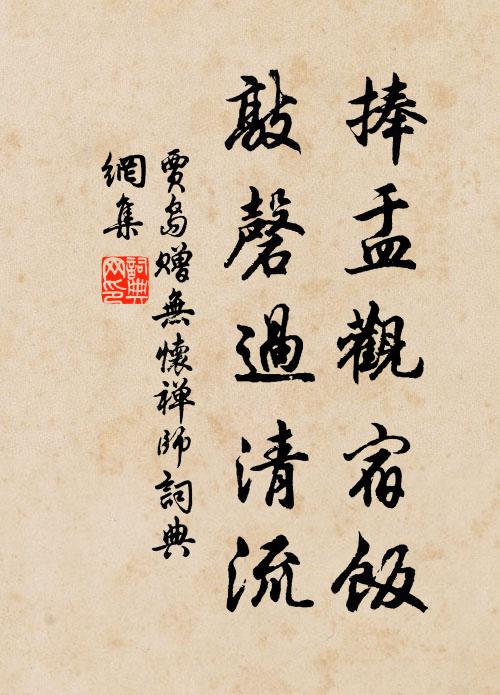 捧盂觀宿飯
敲磬過清流
賈島贈無懷禅師詞典
網集
詞典
网印